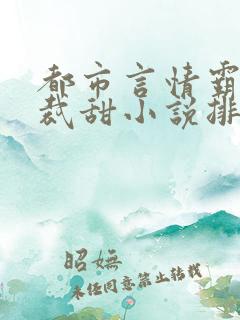 都市言情霸
裁甜小说排
昭嫵
未经同意禁止转载